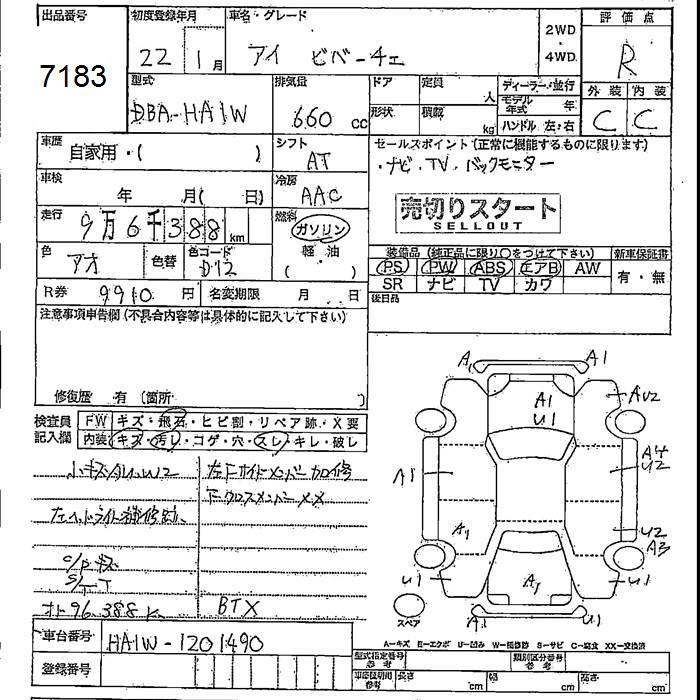 出品番号 初度登録年月 車名・グレード 2WD・4WD 評価点
7183 22年 1月 アイ ビバーチェ R
型式 排気量 ドア 定員 人 ディーラー・並行 外装 内装
DBA-HA1W 660 cc 形状 積載 kg モデル年式 年 C C
ハンドル 左・右
車歴 自家用・( ) シフト AT セールスポイント(正常に機能するものに限ります)
・ナビ・TV・バックモニター
車検 年 月( 日) 冷房 AAC
売切りスタート
SELLOUT
走行 9万6千388 km 燃料 ガソリン
軽・油
( )
色 アオ 色替 色コード D12
装備品(純正品に限り○をつけて下さい) 新車保証書
PS PW ABS エアB AW 有・無
SR ナビ TV カワ
R券 9910円 名変期限 月 日 後日品
注意事項申告欄(不具合内容等は具体的に記入して下さい)
修復歴 有(箇所 )
検査員記入欄 FW キズ・飛石・ヒビ割・リペア跡・X要
内装 キズ・汚レ・コゲ・穴・スレ・キレ・破レ
小キズ U2 左Fサイドメンバー加修
FクロスメンバーXX
左ヘッドライト補修跡
C/P キズ
S/T T
オト 96,388K BTX
A A1
A1
U1
AU2
A1
A4
U2
A1
U2
A3
U1
A1
U1
A1
U1
スペア
A-キズ E-エクボ U-凹み W-補修跡 S-サビ C-腐食 XX-交換済
車台番号 HA1W-1201490
登録番号
型式指定番号 参考 類別区分番号 参考
車庫証明用 参考 長さ cm 幅 cm 高さ cm